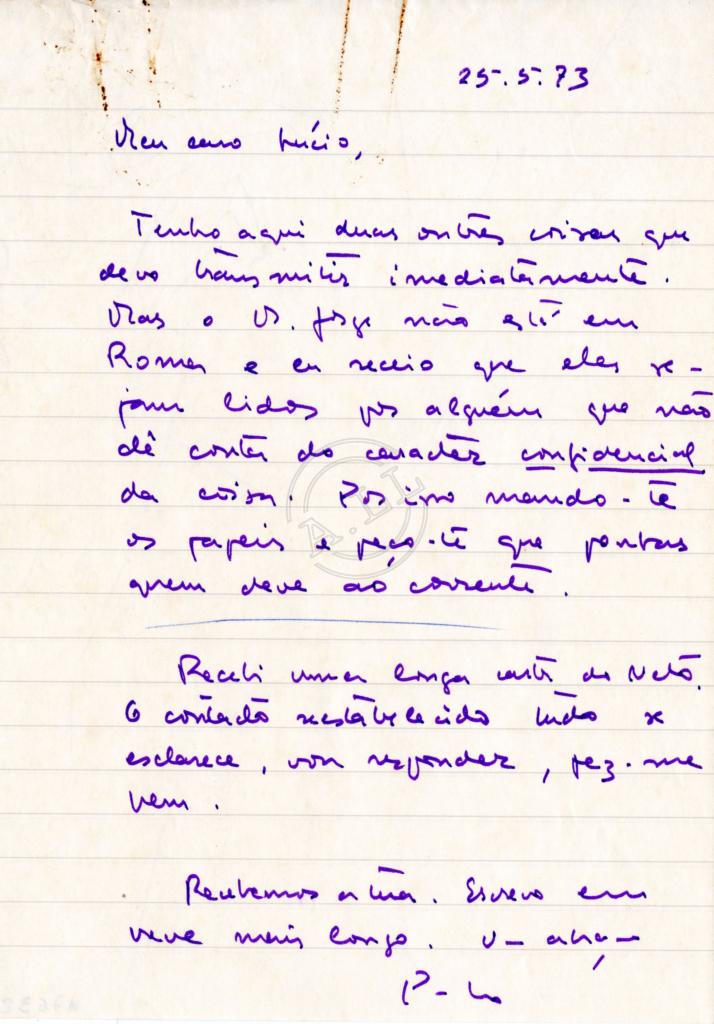 25.5.73
Meu caro Lúcio,
Tenho aqui duas ou três coisas que
devo transmitir imediatamente.
Mas o M. Jorge não está em
Roma e eu receio que elas se-
jam lidas por alguém que não
dê conta do caracter confidencial
da coisa. Por isso mando-te
os papeis e peço-te que ponhas
quem deve ao corrente.
Recebi uma longa carta do Neto.
O contacto restabelecido tudo se
esclarece, vou responder, fez-me
bem.
Recebemos a tua. Escrevo em
breve mais longo. Um abraço
A.EL